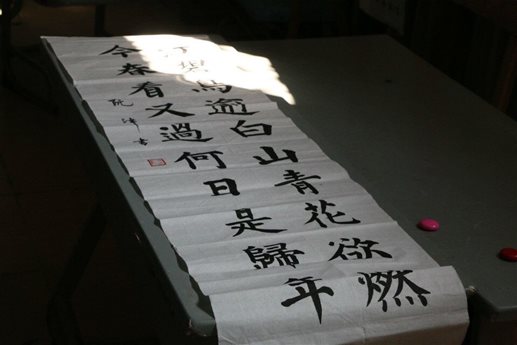 江碧鳥逾白山青花欲燃
今春看又過何日是歸年
阮書